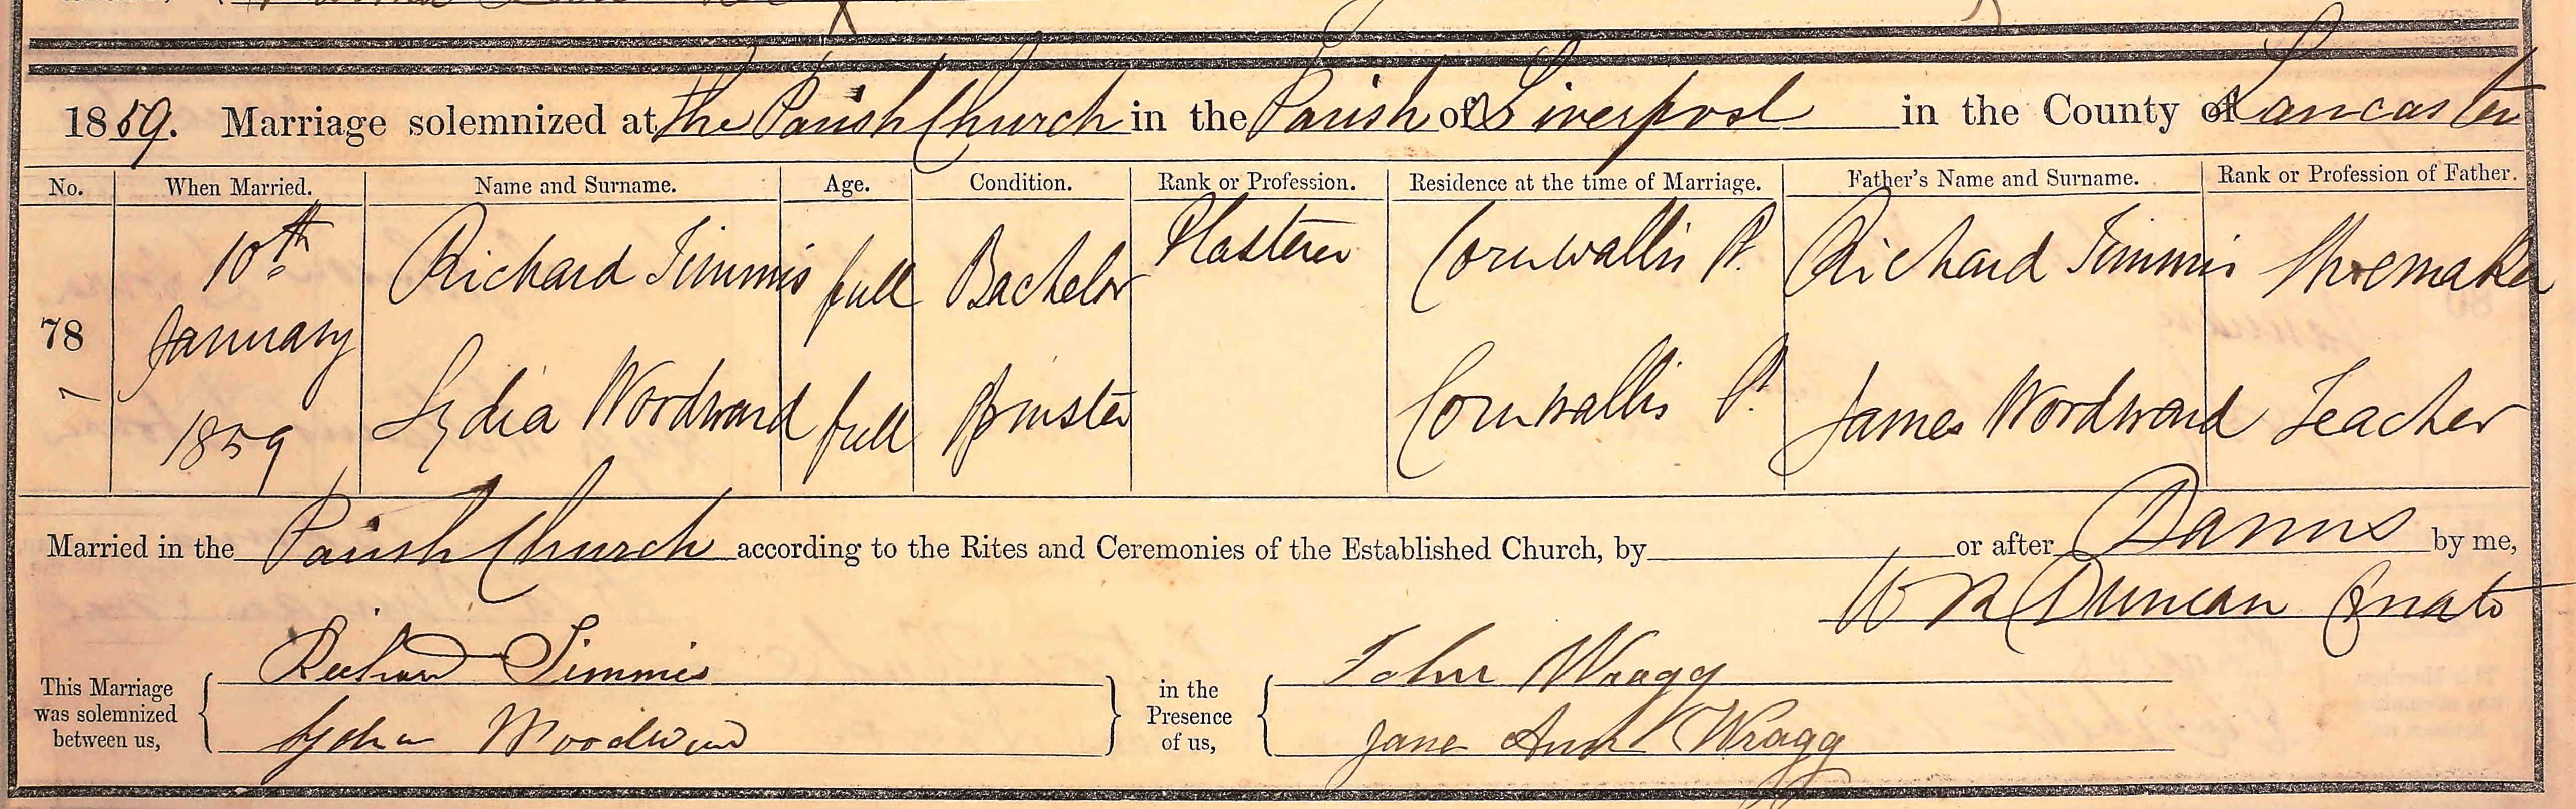 1859. Marriage solemnized at the Parish Church in the Parish of Liverpool in the County of Lancaster
No. When Married. Name and Surname. Age. Condition. Rank or Profession. Residence at the time of Marriage. Father's Name and Surname. Rank or Profession of Father.
78 10th January 1859 Richard Timmis full Bachelor Plasterer Cornwallis St. Richard Timmis Shoemaker
Lydia Woodward full Spinster Cornwallis St. James Woodward Teacher
Married in the Parish Church according to the Rites and Ceremonies of the Established Church, by or after Banns by me,
W R Duncan Curate
This Marriage was solemnized between us, Richard Timmis in the Presence of us, John Wragg
Lydia Woodward Jane Ann Wragg